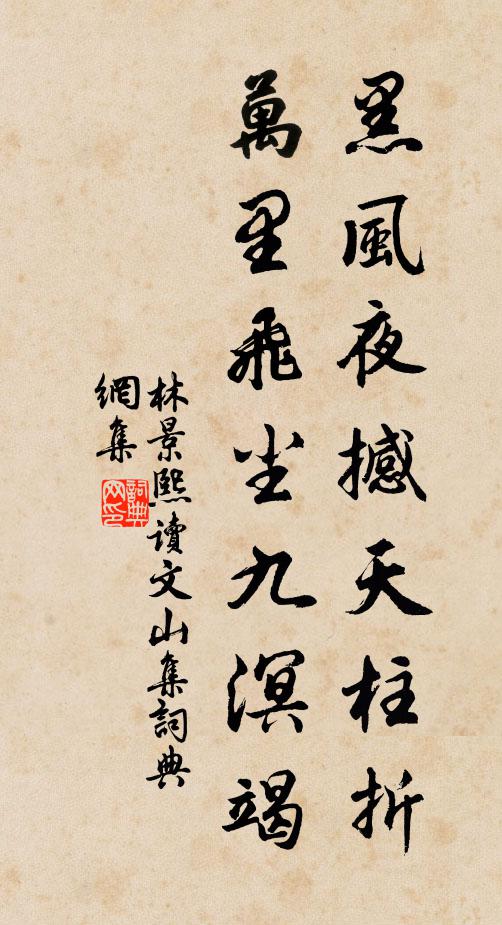 黑風夜撼天柱折
萬里飛尘九溟竭
林景熙讀文山集詞典
網集
詞典
网印